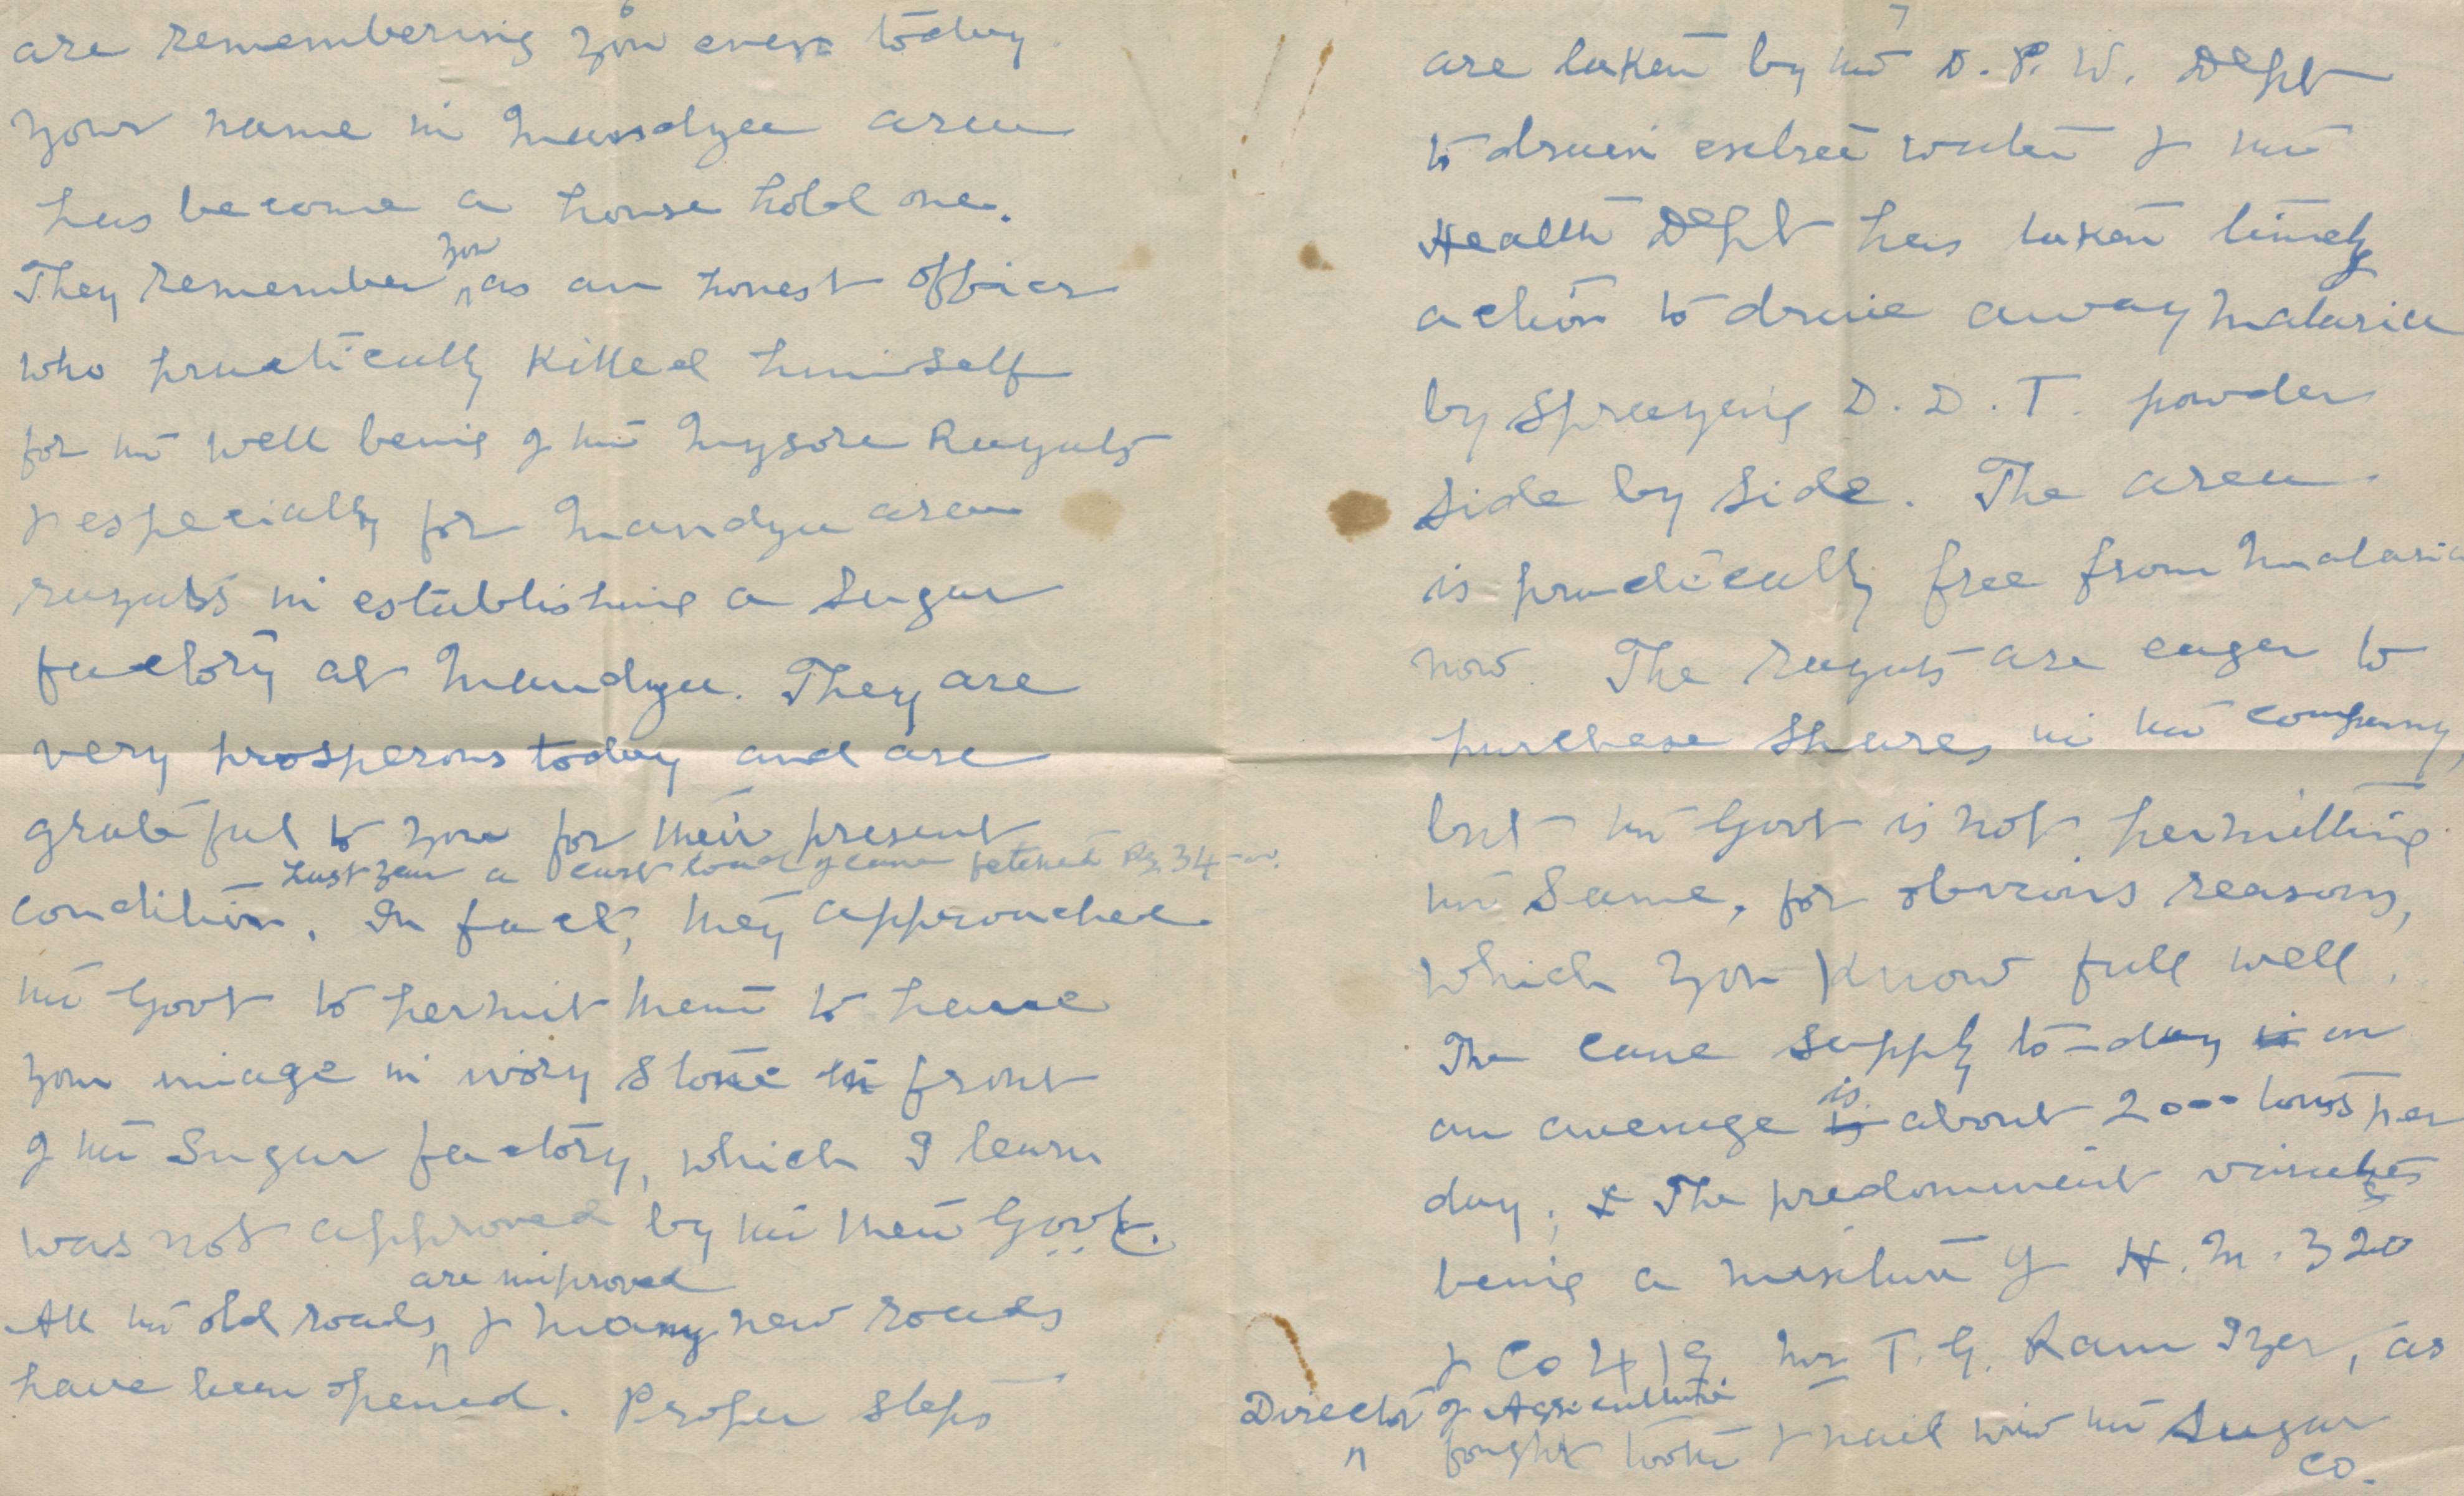 6
are remembering you even today.
your name in Mandya area
has become a house hold one.
They remember you as an honest officer
who practically killed himself
for the well being of the Mysore Raiyats
& especially for Mandya area
raiyats in establishing a Sugar
factory at Mandya. They are
very prosperous today and are
grateful to you for their present
condition. Last year a cart load of cane fetched Rs. 34-00. In fact, they approached
the Govt to permit them to have
your image in ivory stone in front
of the Sugar factory, which I learn
was not approved by the then Govt.
All the old roads are improved & many new roads
have been opened. Proper steps
7
are taken by the D. P. W. Dept
to drain extree water & the
Health Dept has taken timely
action to drive away malaria
by spraying D. D. T. powder
side by side. The area
is practically free from malaria
now. The raiyats are eager to
purchase shares in the company,
but the Govt is not permitting
the same, for obvious reasons,
which you know full well.
The cane supply to-day is on
an average is about 2000 tons per
day; & The predominent varieties
being a mixture of H. M. 320
& Co 419 Mr T. G. Ram Iyer, as
Director of Agriculture
fought tooth & nail with the Sugar
Co.